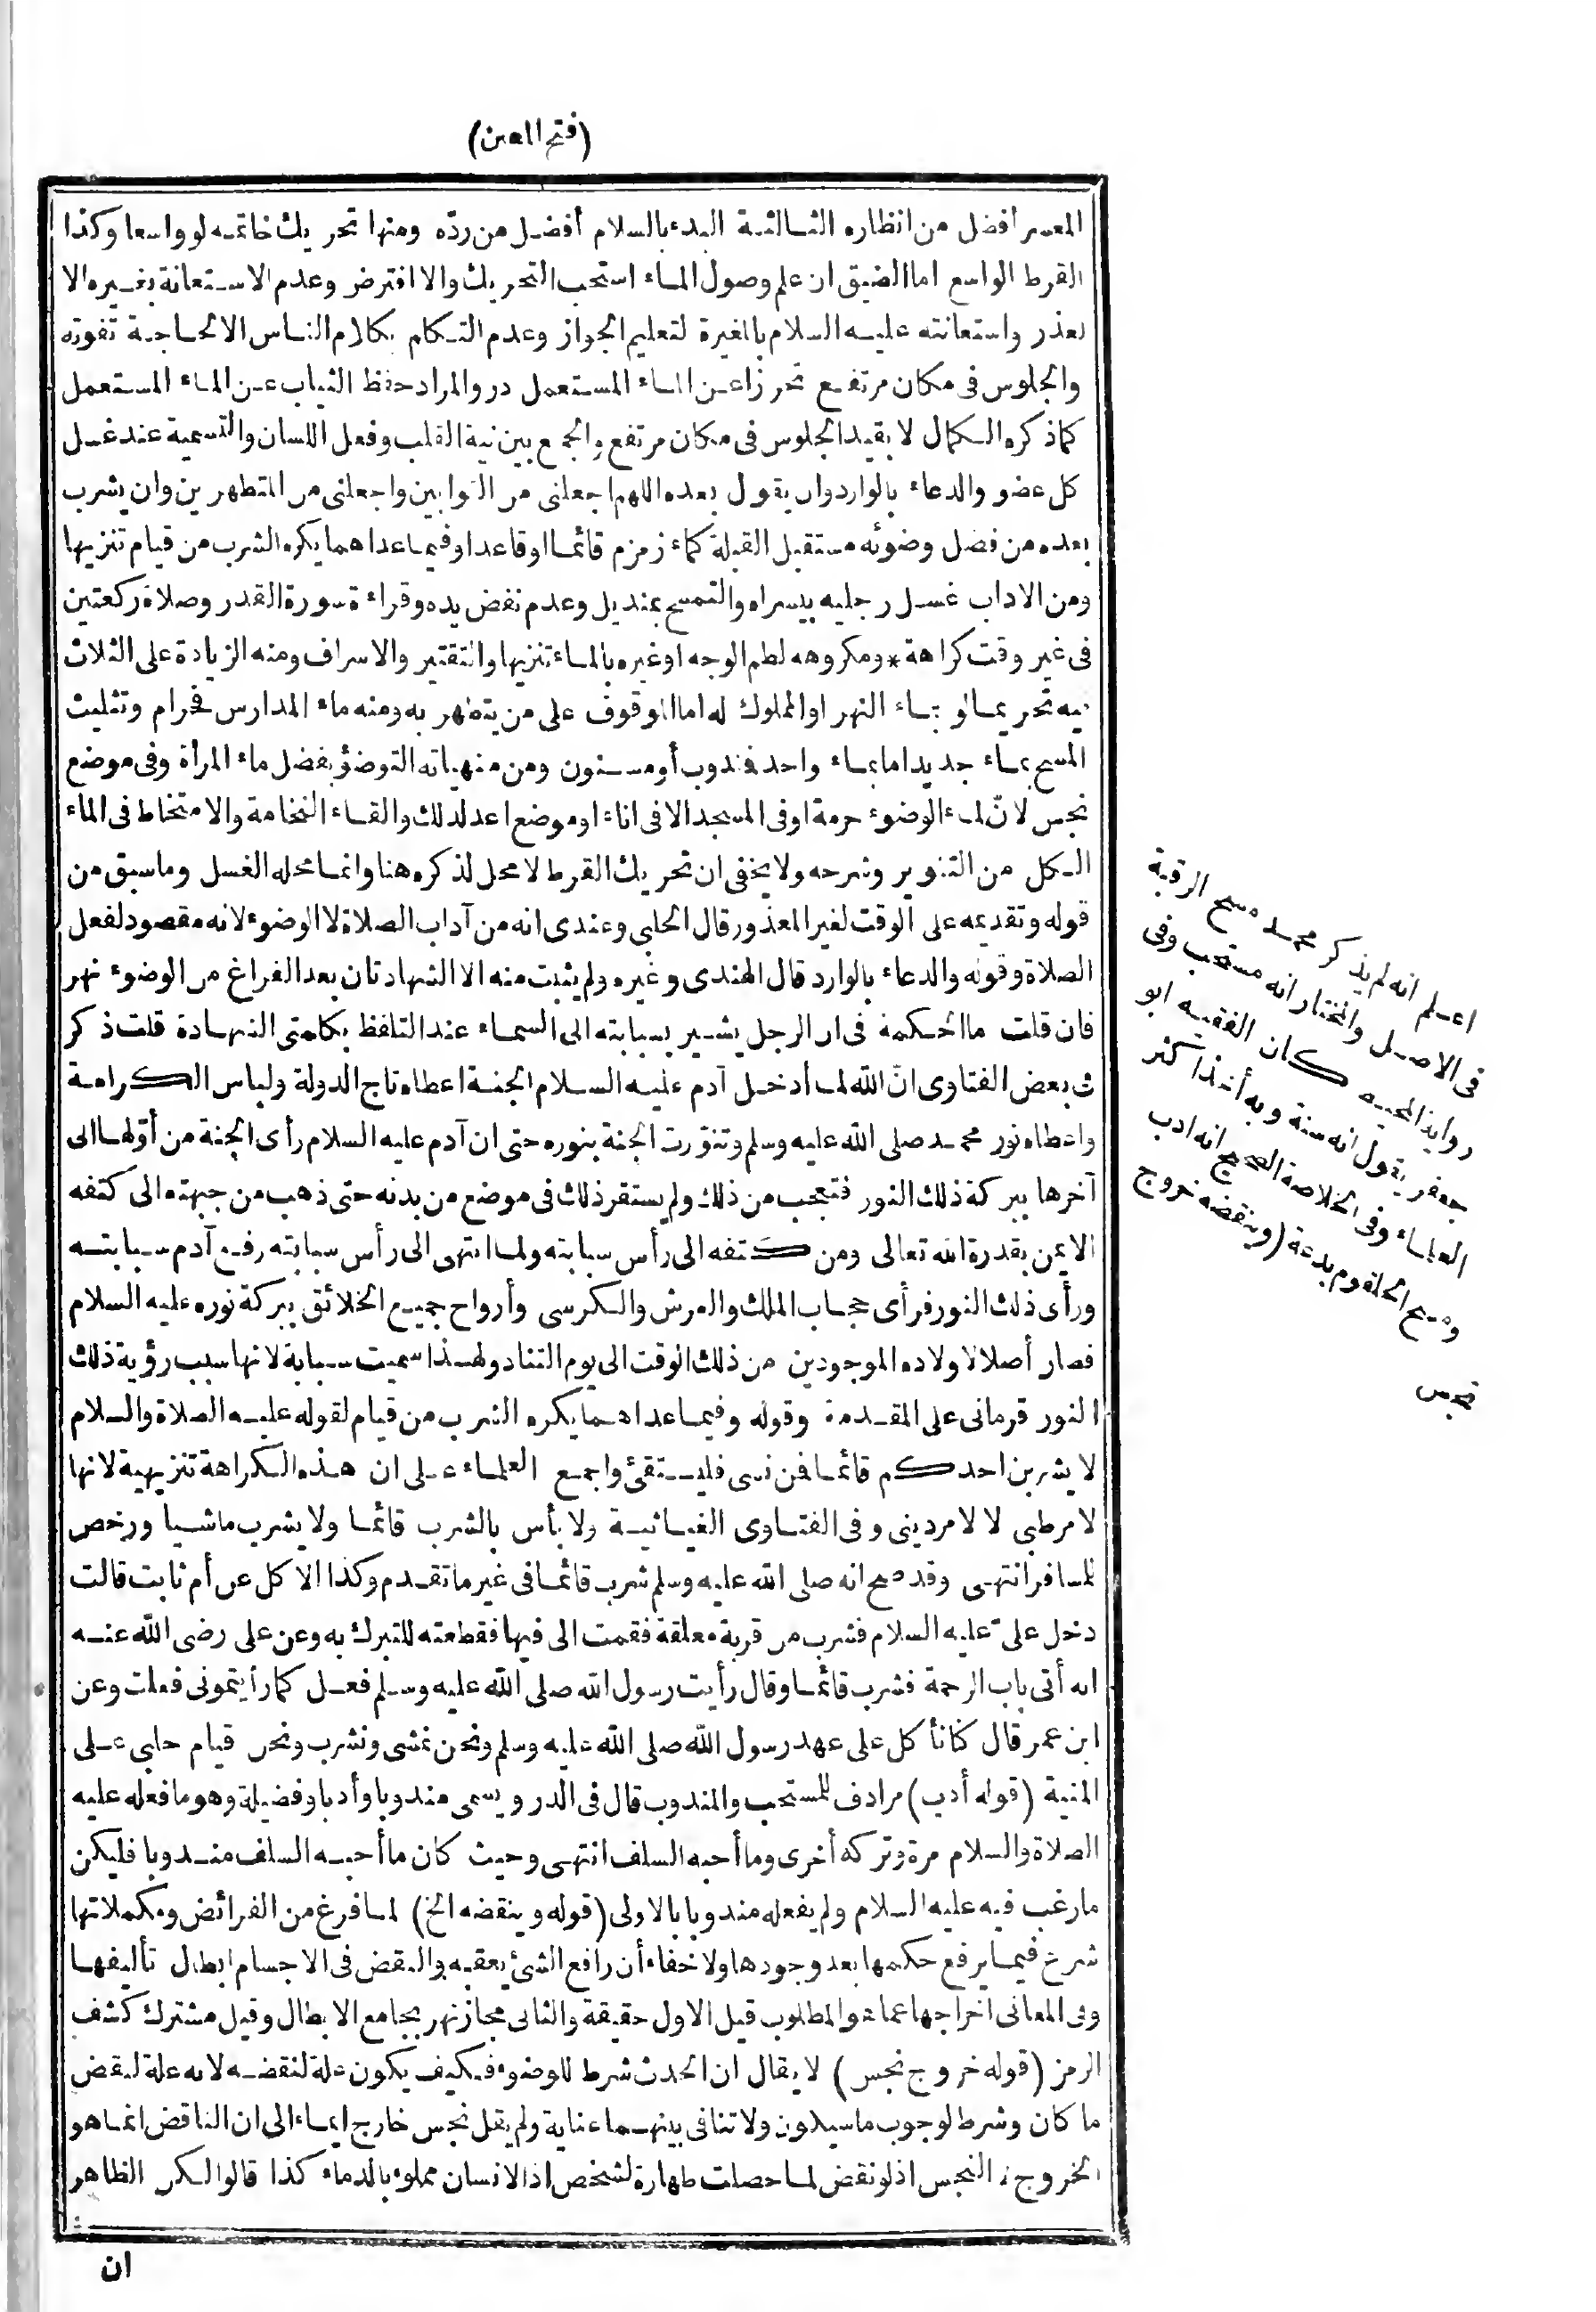 (فتح المعين)
المعسر أفضل من انظاره الثالثة البدء بالسلام أفضل من ردّه ومنها تحريك خاتمه لو واسعا وكذا
القرط الواسع اما الضيق ان علم وصول الماء استحب التحريك والا افترض وعدم الاستعانة بغيره الا
لعذر واستعانته عليه السلام بالمغيرة لتعليم الجواز وعدم التكلم بكلام الناس الا لحاجة تفوته
والجلوس فى مكان مرتفع تحرزا عن الماء المستعمل در والمراد حفظ الثياب عن الماء المستعمل
كما ذكره الكمال لا بقيد الجلوس فى مكان مرتفع والجمع بين نية القلب وفعل اللسان والتسمية عند غسل
كل عضو والدعاء بالوارد وان يقول بعده اللهم اجعلنى من التوابين واجعلنى من المتطهرين وان يشرب
بعده من فضل وضوئه مستقبل القبلة كماء زمزم قائما او قاعدا وفيما عداهما يكره الشرب من قيام تنزيها
ومن الاداب غسل رجليه بيسراه والتمسح بمنديل وعدم نفض يده وقراءة سورة القدر وصلاة ركعتين
فى غير وقت كراهة * ومكروهه لطم الوجه او غيره بالماء تنزيها والتقتير والاسراف ومنه الزيادة على الثلاث
فيه تحريما لو بماء النهر او المملوك له اما الموقوف على من يتطهر به ومنه ماء المدارس فحرام وتثليث
المسح بماء جديد اما بماء واحد فمندوب أو مسنون ومن منهياته التوضؤ بفضل ماء المرأة وفى موضع
نجس لانّ لماء الوضوء حرمة او فى المسجد الا فى اناء او موضع اعد لذلك والقاء النخامة والامتخاط فى الماء
الكل من التنوير وشرحه ولا يخفى ان تحريك القرط لا محل لذكره هنا وانما محله الغسل وما سبق من
قوله وتقديمه على الوقت لغير المعذور قال الحلبى وعندى انه من آداب الصلاة لا الوضوء لانه مقصود لفعل
الصلاة وقوله والدعاء بالوارد قال الهندى وغيره ولم يثبت منه الا الشهادتان بعد الفراغ من الوضوء نهر
فان قلت ما الحكمة فى ان الرجل يشير بسبابته الى السماء عند التلفظ بكلمتى الشهادة قلت ذكر
فى بعض الفتاوى انّ الله لما أدخل آدم عليه السلام الجنة اعطاه تاج الدولة ولباس الكرامة
واعطاه نور محمد صلى الله عليه وسلم وتنوّرت الجنة بنوره حتى ان آدم عليه السلام رأى الجنة من أوّلها الى
آخرها ببركة ذلك النور فتعجب من ذلك ولم يستقر ذلك فى موضع من بدنه حتى ذهب من جبهته الى كتفه
الايمن بقدرة الله تعالى ومن كتفه الى رأس سبابته ولما انتهى الى رأس سبابته رفع آدم سبابته
ورأى ذلك النور فرأى حجاب الملك والعرش والكرسى وأرواح جميع الخلائق ببركة نوره عليه السلام
فصار أصلا لاولاده الموجودين من ذلك الوقت الى يوم التناد ولهذا سميت سبابة لانها سبب رؤية ذلك
النور قرمانى على المقدمة وقوله وفيما عداهما يكره الشرب من قيام لقوله عليه الصلاة والسلام
لا يشربن احدكم قائما فمن نسى فليستقئ واجمع العلماء على ان هذه الكراهة تنزيهية لانها
لامر طبى لا لامر دينى وفى الفتاوى الغياثية ولا بأس بالشرب قائما ولا يشرب ماشيا ورخص
للمسافر انتهى وقد صح انه صلى الله عليه وسلم شرب قائما فى غير ما تقدم وكذا الاكل عن أم ثابت قالت
دخل علىّ عليه السلام فشرب من قربة معلقة فقمت الى فيها فقطعته للتبرك به وعن على رضى الله عنه
انه أتى باب الرحمة فشرب قائما وقال رأيت رسول الله صلى الله عليه وسلم فعل كما رأيتمونى فعلت وعن
ابن عمر قال كنا نأكل على عهد رسول الله صلى الله عليه وسلم ونحن نمشى ونشرب ونحن قيام حلبى على
المنية (قوله أدب) مرادف للمستحب والمندوب قال فى الدر ويسمى مندوبا وأدبا وفضيلة وهو ما فعله عليه
الصلاة والسلام مرة وتركه أخرى وما أحبه السلف انتهى وحيث كان ما أحبه السلف مندوبا فليكن
ما رغب فيه عليه السلام ولم يفعله مندوبا بالاولى (قوله وينقضه الخ) لما فرغ من الفرائض ومكملاتها
شرع فيما يرفع حكمها بعد وجودها ولا خفاء أن رافع الشئ يعقبه والنقض فى الاجسام ابطال تأليفها
وفى المعانى اخراجها عما هو المطلوب قيل الاول حقيقة والثانى مجاز نهر بجامع الابطال وقيل مشترك كشف
الرمز (قوله خروج نجس) لا يقال ان الحدث شرط للوضوء فكيف يكون علة لنقضه لانه علة لنقض
ما كان وشرط لوجوب ما سيكون ولا تنافى بينهما عناية ولم يقل نجس خارج ايماء الى ان الناقض انما هو
الخروج لا النجس اذ لو نقض لما حصلت طهارة لشخص اذ الانسان مملوء بالدماء كذا قالوا لكن الظاهر
ان
اعلم انه لم يذكر محمد مسح الرقبة
فى الاصل والمختار انه مستحب وفى
رواية المحيط كان الفقيه ابو
جعفر يقول انه سنة وبه أخذ اكثر
العلماء وفى الخلاصة الصحيح انه ادب
ومسح الحلقوم بدعة (وينقضه خروج
نجس